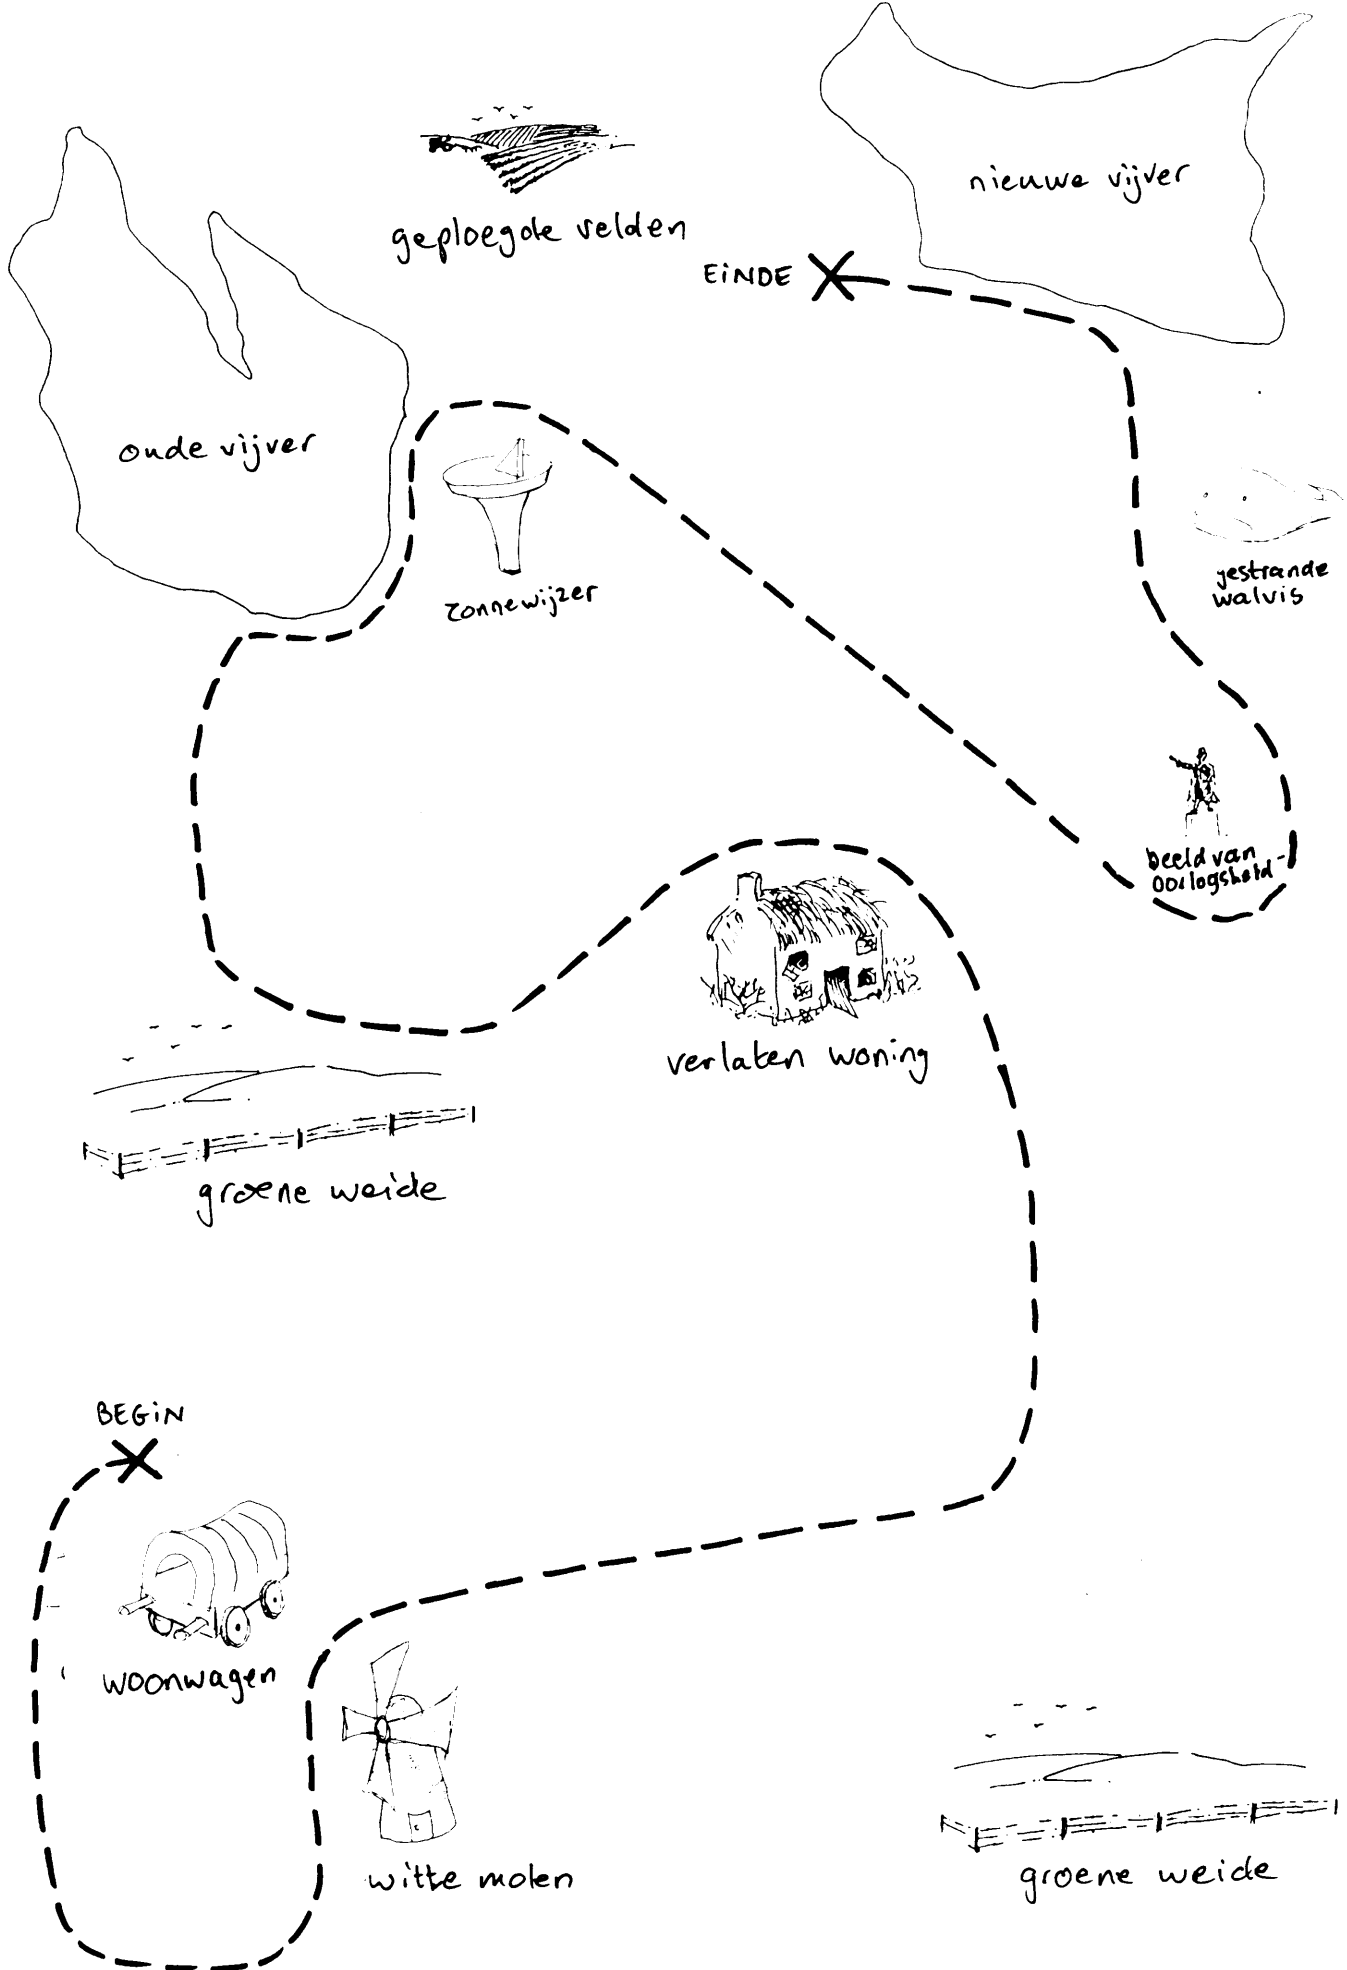 nieuwe vijver
geploegde velden
EINDE
oude vijver
zonnewijzer
gestrande
walvis
beeld van
oorlogsheld
verlaten woning
groene weide
BEGIN
woonwagen
witte molen
groene weide